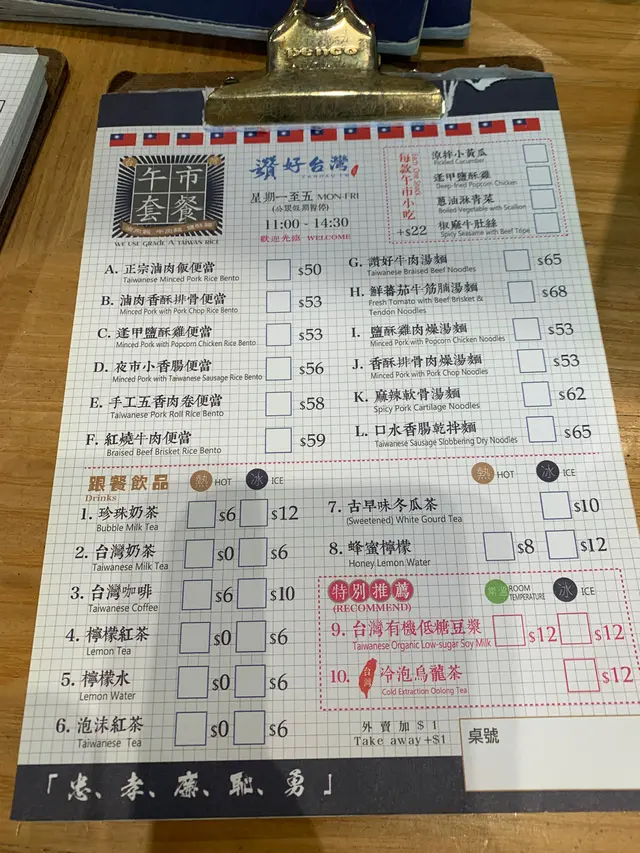 午市
套餐
WE USE GRADE A TAIWAN RICE
讚好台灣
星期一至五 MON-FRI
(公眾假期暫停)
11:00 - 14:30
歡迎光臨 WELCOME
每款午市小吃
+$22
涼拌小黃瓜
Pickled Cucumber
逢甲鹽酥雞
Deep-fried Popcorn Chicken
蔥油淋青菜
Boiled Vegetable with Scallion
椒麻牛肚絲
Spicy Seasame with Beef Tripe
A. 正宗滷肉飯便當 $50
Taiwanese Minced Pork Rice Bento
B. 滷肉香酥排骨便當 $53
Minced Pork with Pork Chop Rice Bento
C. 逢甲鹽酥雞便當 $53
Minced Pork with Popcorn Chicken Rice Bento
D. 夜市小香腸便當 $56
Minced Pork with Taiwanese Sausage Rice Bento
E. 手工五香肉卷便當 $58
Taiwanese Pork Roll Rice Bento
F. 紅燒牛肉便當 $59
Braised Beef Brisket Rice Bento
G. 讚好牛肉湯麵 $65
Taiwanese Braised Beef Noodles
H. 鮮蕃茄牛筋腩湯麵 $68
Fresh Tomato with Beef Brisket &
Tendon Noodles
I. 鹽酥雞肉燥湯麵 $53
Minced Pork with Popcorn Chicken Noodles
J. 香酥排骨肉燥湯麵 $53
Minced Pork with Pork Chop Noodles
K. 麻辣軟骨湯麵 $62
Spicy Pork Cartilage Noodles
L. 口水香腸乾拌麵 $65
Taiwanese Sausage Slobbering Dry Noodles
跟餐飲品 熱 HOT 冰 ICE
Drinks
1. 珍珠奶茶 $6 $12
Bubble Milk Tea
2. 台灣奶茶 $0 $6
Taiwanese Milk Tea
3. 台灣咖啡 $6 $10
Taiwanese Coffee
4. 檸檬紅茶 $0 $6
Lemon Tea
5. 檸檬水 $0 $6
Lemon Water
6. 泡沫紅茶 $0 $6
Taiwanese Tea
熱 HOT 冰 ICE
7. 古早味冬瓜茶 $10
(Sweetened) White Gourd Tea
8. 蜂蜜檸檬 $8 $12
Honey Lemon Water
特別推薦 常溫 ROOM TEMPERATURE 冰 ICE
(RECOMMEND)
9. 台灣有機低糖豆漿 $12 $12
Taiwanese Organic Low-sugar Soy Milk
10. 台灣 冷泡烏龍茶 $12
Cold Extraction Oolong Tea
外賣加 $1
Take away +$1
桌號
「忠、孝、廉、恥、勇」